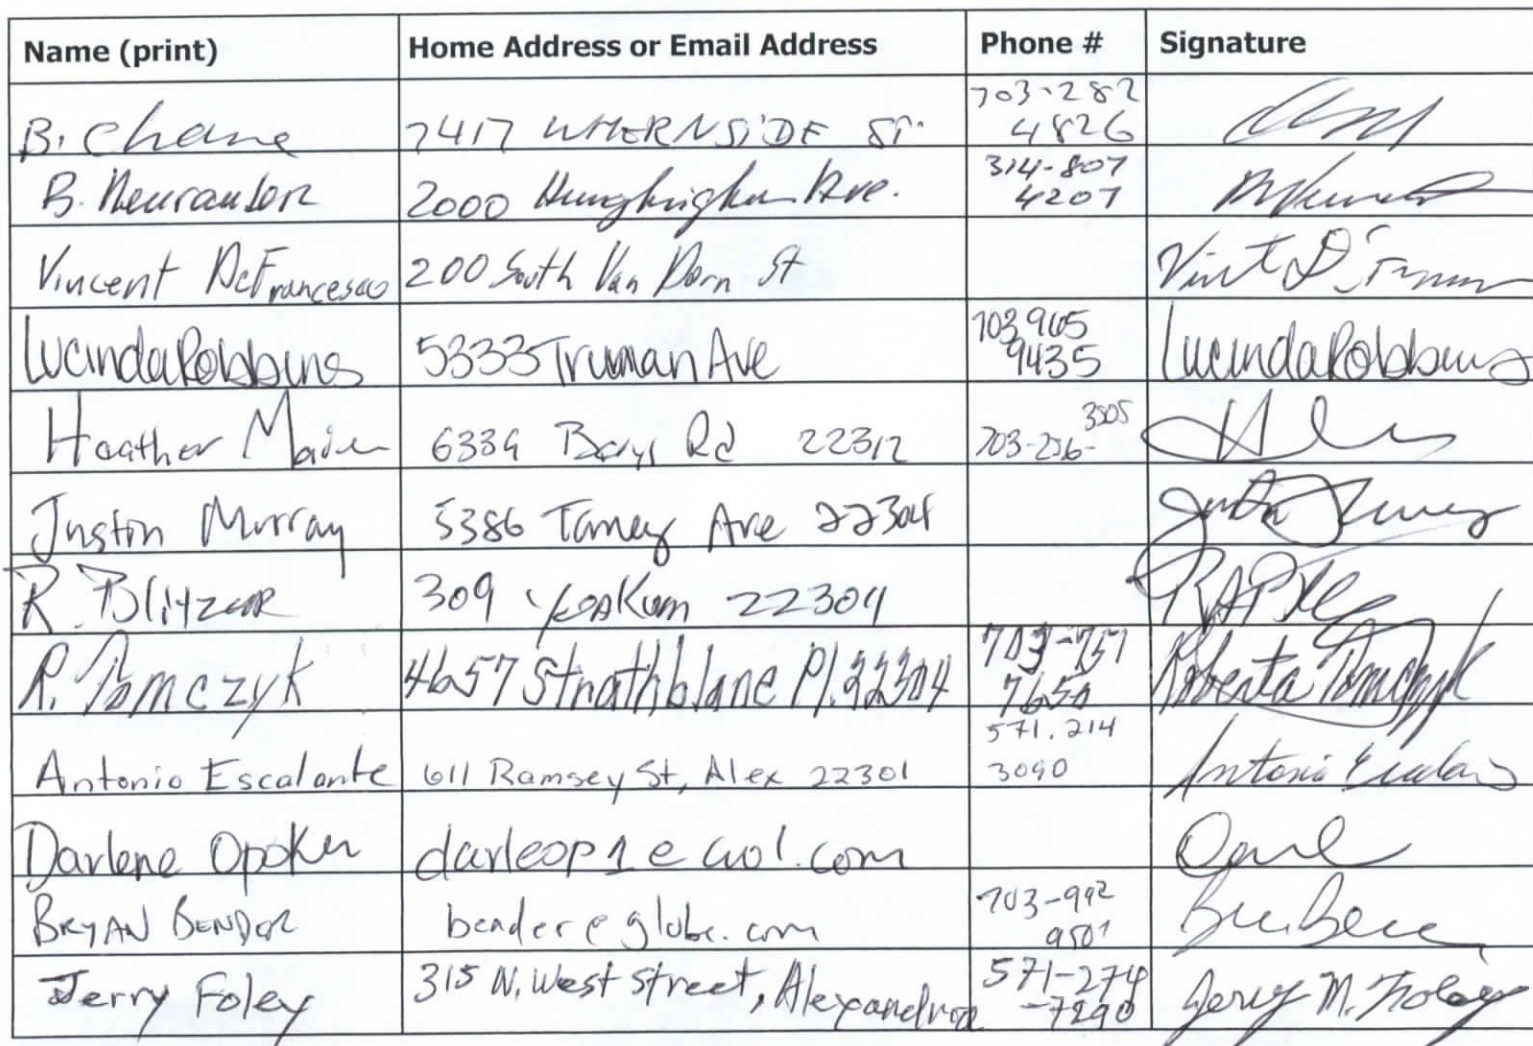 Name (print) Home Address or Email Address Phone # Signature
B. Chane 7417 WHERNSIDE ST. 703-282 4826
B. 2000 Ave. 314-807 4207
Vincent DeFrancesco 200 South Van Dorn St
Lucinda Robbins 5333 Truman Ave 703 965 9435 Lucinda Robbins
Heather 6339 Rd 22312 703-256- 3505
Justin Murray 5386 Taney Ave 22304
R. Blitzer 309 Yoakum 22304
R. Tomczyk 4657 Strathblane Pl. 22304 703-751 7650 Roberta Tomczyk
Antonio Escalante 611 Ramsey St, Alex 22301 571.214 3090 Antonio Escalante
Darlene Opoku darleop1@aol.com
BRYAN BENDER bender@globe.com 703-992 9501
Jerry Foley 315 N. West Street, Alexandria 571-274 -7290 Jerry M. Foley